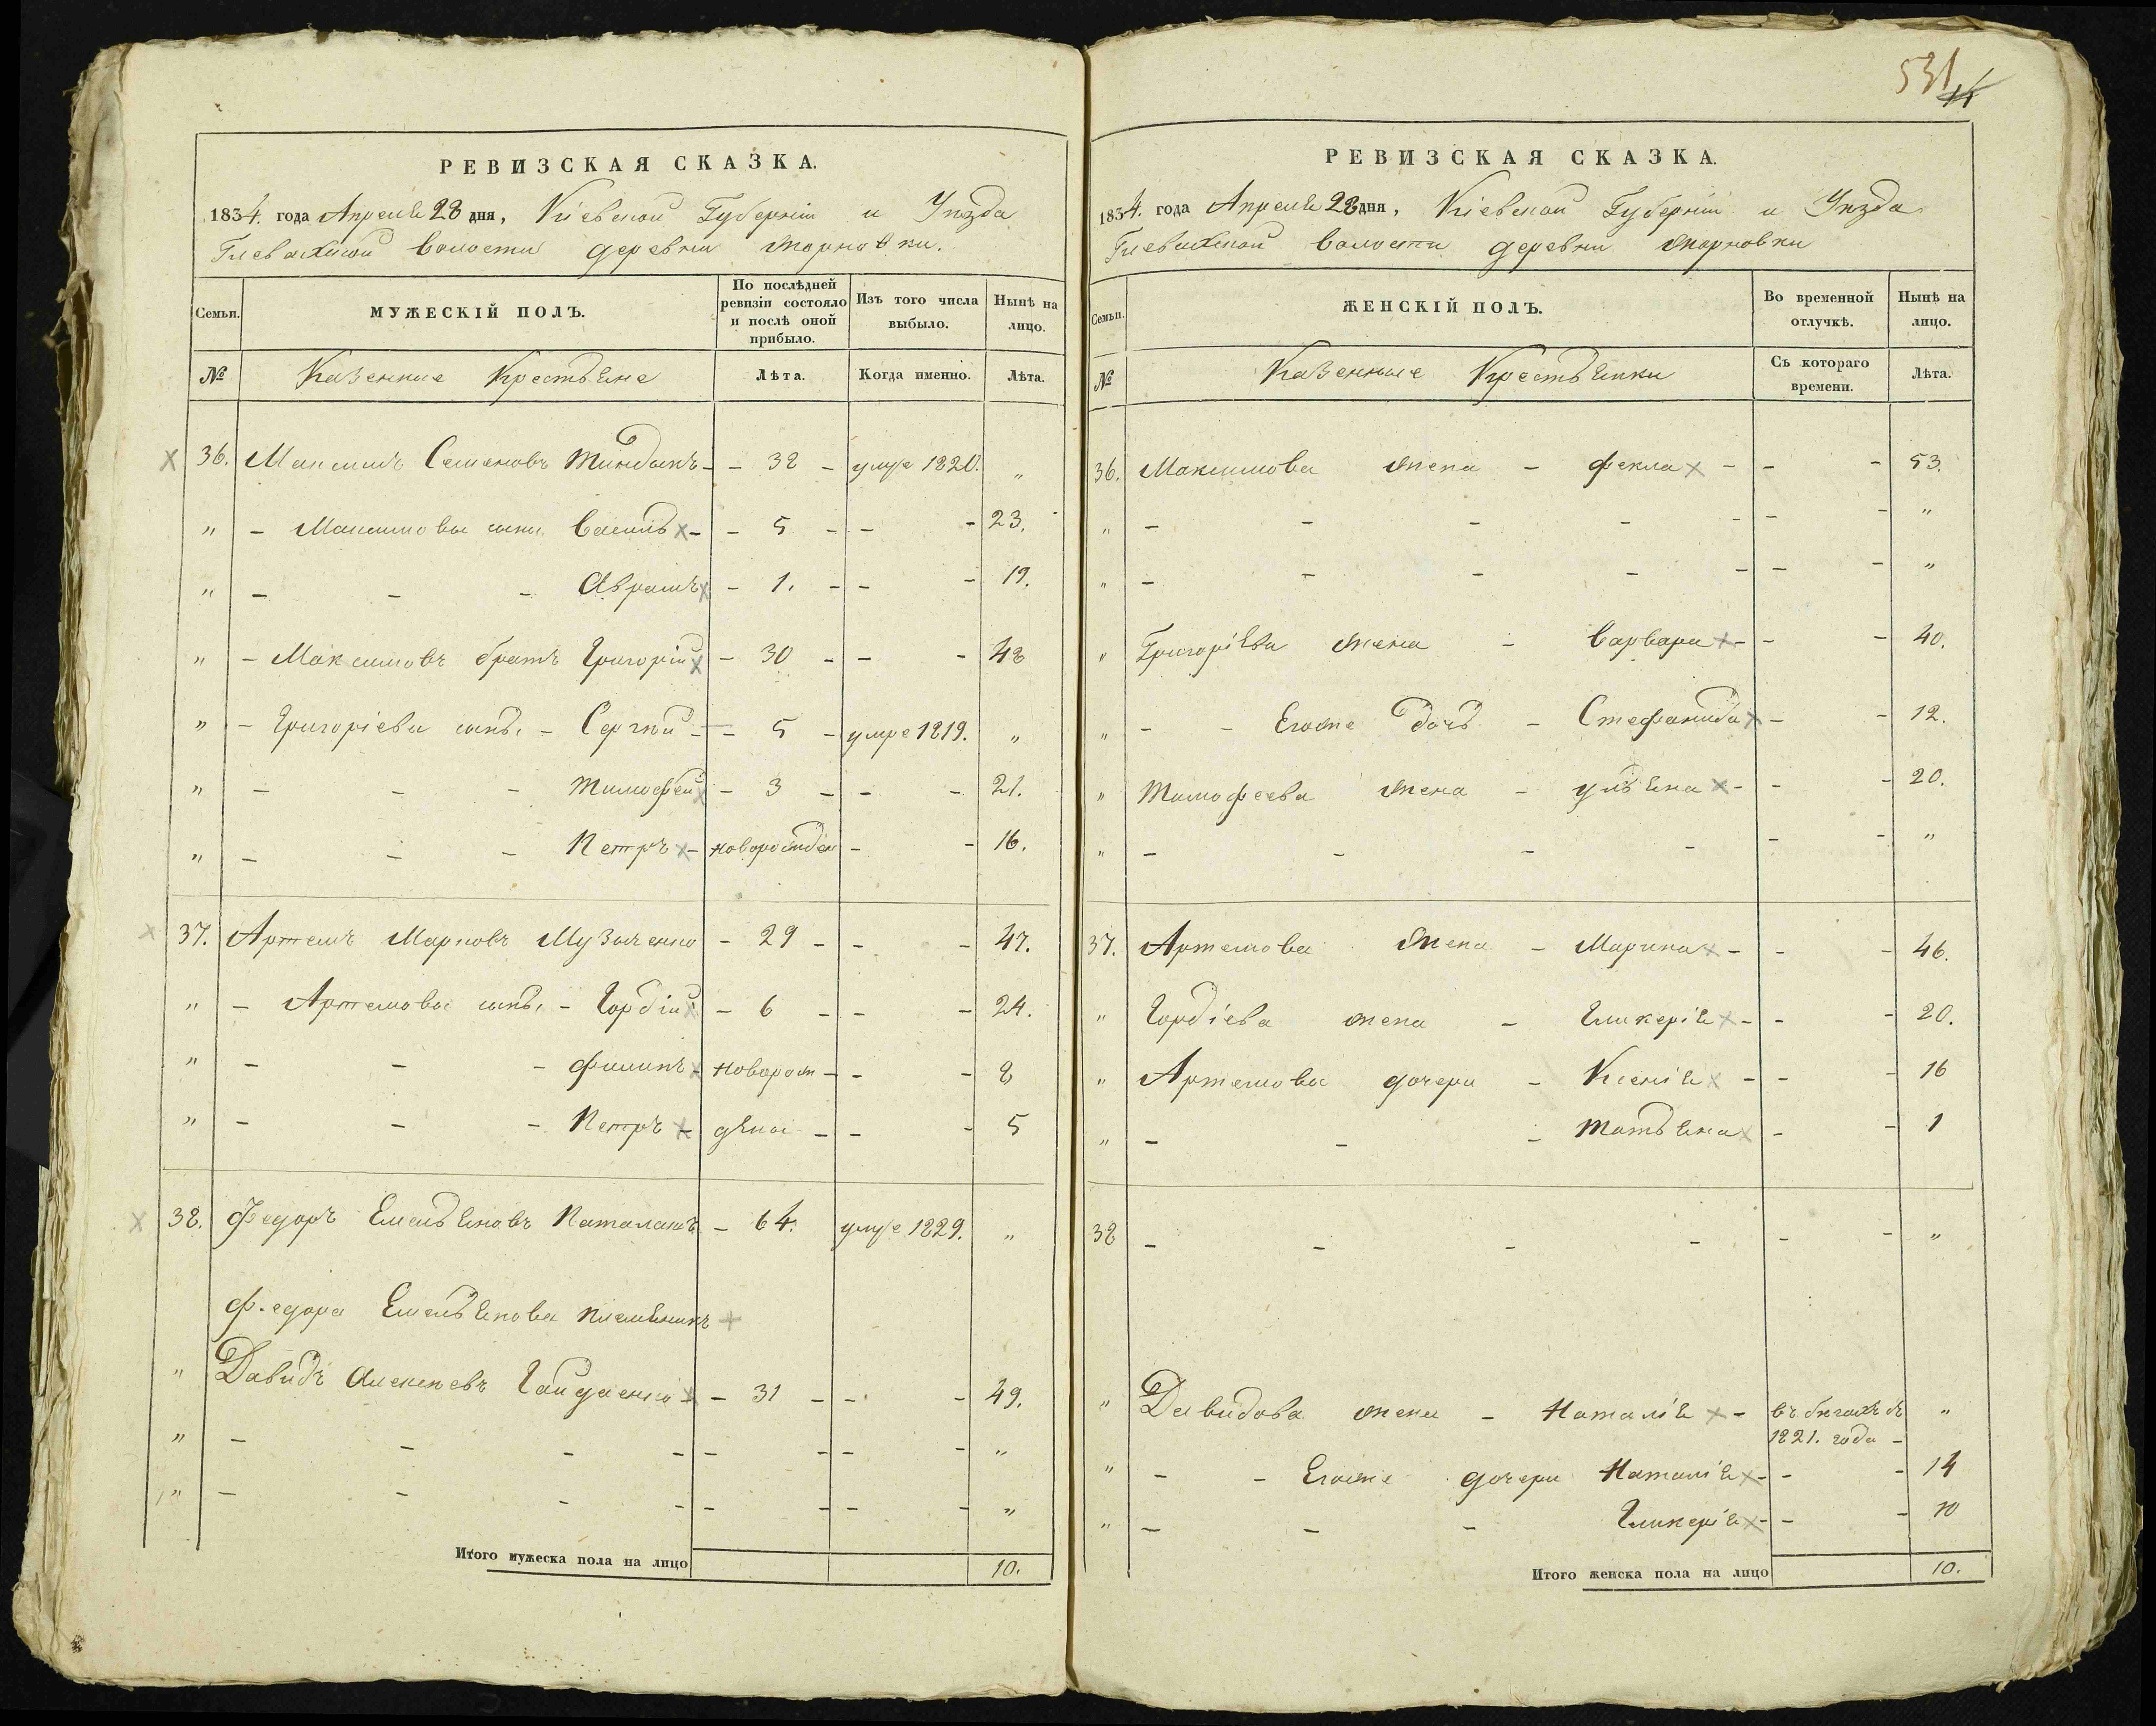 РЕВИЗСКАЯ СКАЗКА.
1834. года Апреля 28 дня, Кіевской Губерніи и Уѣзда
Глевахской волости деревни Тарновки.
Семьи.
МУЖЕСКІЙ ПОЛЪ.
По послѣдней ревизіи состояло и послѣ оной прибыло.
Изъ того числа выбыло.
Нынѣ на лицо.
№ Казенные Крестьяне Лѣта. Когда именно. Лѣта.
36. Максимъ Семеновъ - 38 - умре 1820. „
„ - Максимовы сыны Василь - 5 - - - 23.
„ - - - Аврамъ - 1. - - - 19.
„ - Максимовъ братъ Григорій - 30 - - - 48
„ - Григоріевы сынь. - Сергѣй - 5 - умре 1819. „
„ - - - Тимофей - 3 - - - 21.
„ - - - Петръ - новорожден - - 16.
37. Артемъ Марковъ Музыченко - 29 - - - 47.
„ - Артемовы сынь. - Гордій - 6 - - - 24.
„ - - - Филипъ - новорож - - - 8
„ - - - Петръ - дѣны - - - 5
38. Федоръ Емельяновъ - 64. умре 1829. „
Федора Емельянова племяникъ
„ Давидъ Алексѣевъ Гайдаенко - 31 - - - 49.
„ - - - - - - - - „
„ - - - - - - - - „
Итого мужеска пола на лицо 10.
531
РЕВИЗСКАЯ СКАЗКА.
1834. года Апреля 28 дня, Кіевской Губерніи и Уѣзда
Глевахской волости деревни Тарновки
Семьи.
ЖЕНСКІЙ ПОЛЪ.
Во временной отлучкѣ.
Нынѣ на лицо.
№ Казенные Крестьянки Съ котораго времени. Лѣта.
36. Максимова жена - Фекла - - - 53.
„ - - - - - - - „
„ - - - - - - - „
„ Григоріева жена - Варвара - - - 40.
„ - - Егоже дочь - Стефанида - - 12.
„ Тимофеева жена - Ульяна - - - 20.
„ - - - - - - „
37. Артемова жена - Марина - - - 46.
„ Гордіева жена - Гликерія - - - 20.
„ Артемовы дочери - Ксенія - - - 16
„ - - - Татьяна - - 1
38 - - - - - - „
„ Давидова жена - Наталія - въ бѣгахъ съ 1821. года - „
„ - - Егоже дочери Наталія - - - 14
„ - - - Гликерія - - - 10
Итого женска пола на лицо 10.